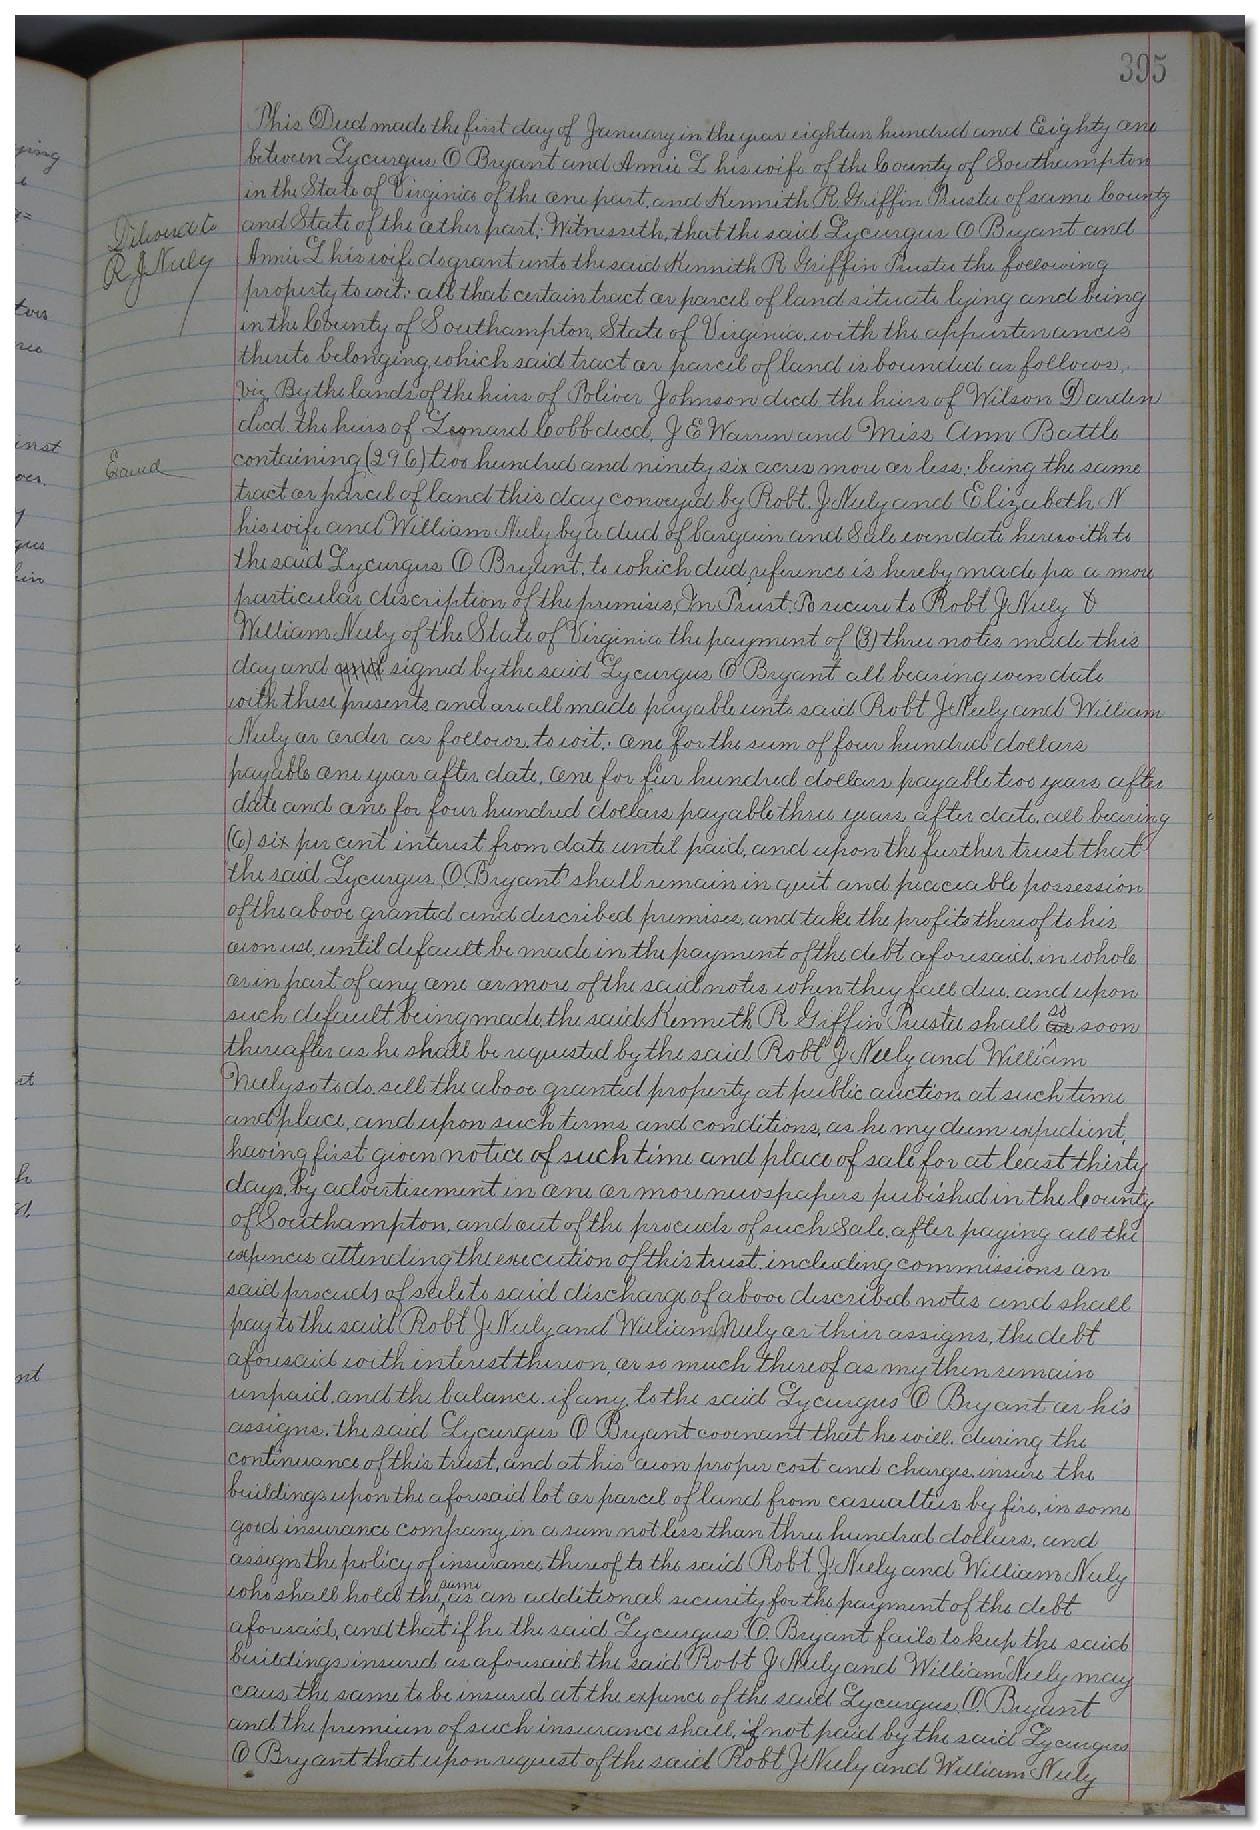 395
This Deed made the first day of January in the year eighteen hundred and Eighty one
between Lycurgus O Bryant and Annie L his wife of the County of Southampton
in the State of Virginia of the one part, and Kenneth R Griffin Trustee of same County
and State of the other part; Witnesseth, that the said Lycurgus O Bryant and
Annie L his wife do grant unto the said Kennith R Griffin Trustee the following
property to wit: all that certain tract or parcel of land situate lying and being
in the County of Southampton, State of Virginia, with the appurtenances
thereto belonging, which said tract or parcel of land is bounded as follows,
viz, By the lands of the heirs of Johnson decd the heirs of Wilson Darden
decd, the heirs of Leonard Cobb decd, J E Warren and Miss Ann Battle
containing (296) two hundred and ninety six acres more or less; being the same
tract or parcel of land this day conveyed by Robt. J Neely and Elizabeth N
his wife and William Neely by a deed of bargain and Sale even date herewith to
the said Lycurgus O Bryant, to which deed reference is hereby made for a more
particular description of the premises, In Trust, To secure to Robt J Neely &
William Neely of the State of Virginia the payment of (3) three notes made this
day and signed by the said Lycurgus O Bryant all bearing even date
with these presents and are all made payable unto said Robt J Neely and William
Neely or order as follows, to wit; one for the sum of four hundred dollars
payable one year after date, one for four hundred dollars payable two years after
date and one for four hundred dollars payable three years after date, all bearing
(6) six per cent interest from date until paid, and upon the further trust that
the said Lycurgus O. Bryant shall remain in quit and peaceable possession
of the above granted and described premises, and take the profits thereof to his
own use, until default be made in the payment of the debt aforesaid, in whole
or in part of any one or more of the said notes when they fall due, and upon
such default being made, the said Kenneth R Griffin Trustee shall so soon
thereafter as he shall be requested by the said Robt J Neely and William
Neely so to do, sell the above granted property at public auction at such time
and place, and upon such terms and conditions, as he my deem expedient,
having first given notice of such time and place of sale for at least thirty
days, by advertisement in one or more newspapers pubished in the County
of Southampton, and out of the proceeds of such Sale, after paying all the
expences attending the execution of this trust, including commissions on
said proceeds of sale to said discharge of above described notes and shall
pay to the said Robt J Neely and William Neely or their assigns, the debt
aforesaid with interest thereon, or so much thereof as my then remain
unpaid, and the balance, if any, to the said Lycurgus O Bryant or his
assigns, the said Lycurgus O Bryant covenant that he will, during the
continuance of this trust, and at his own proper cost and charges, insure the
buildings upon the aforesaid lot or parcel of land from casualties by fire, in some
good insurance company, in a sum not less than three hundred dollars, and
assign the policy of insurance thereof to the said Robt J Neely and William Neely
who shall hold the same as an additional security for the payment of the debt
aforesaid, and that if he the said Lycurgus O. Bryant fails to keep the said
buildings insured as aforesaid the said Robt J Neely and William Neely may
caus the same to be insured at the expence of the said Lycurgus O. Bryant
and the premiun of such insurance shall, if not paid by the said Lycurgus
O Bryant that upon request of the said Robt J Neely and William Neely
R J Neely
Exmd